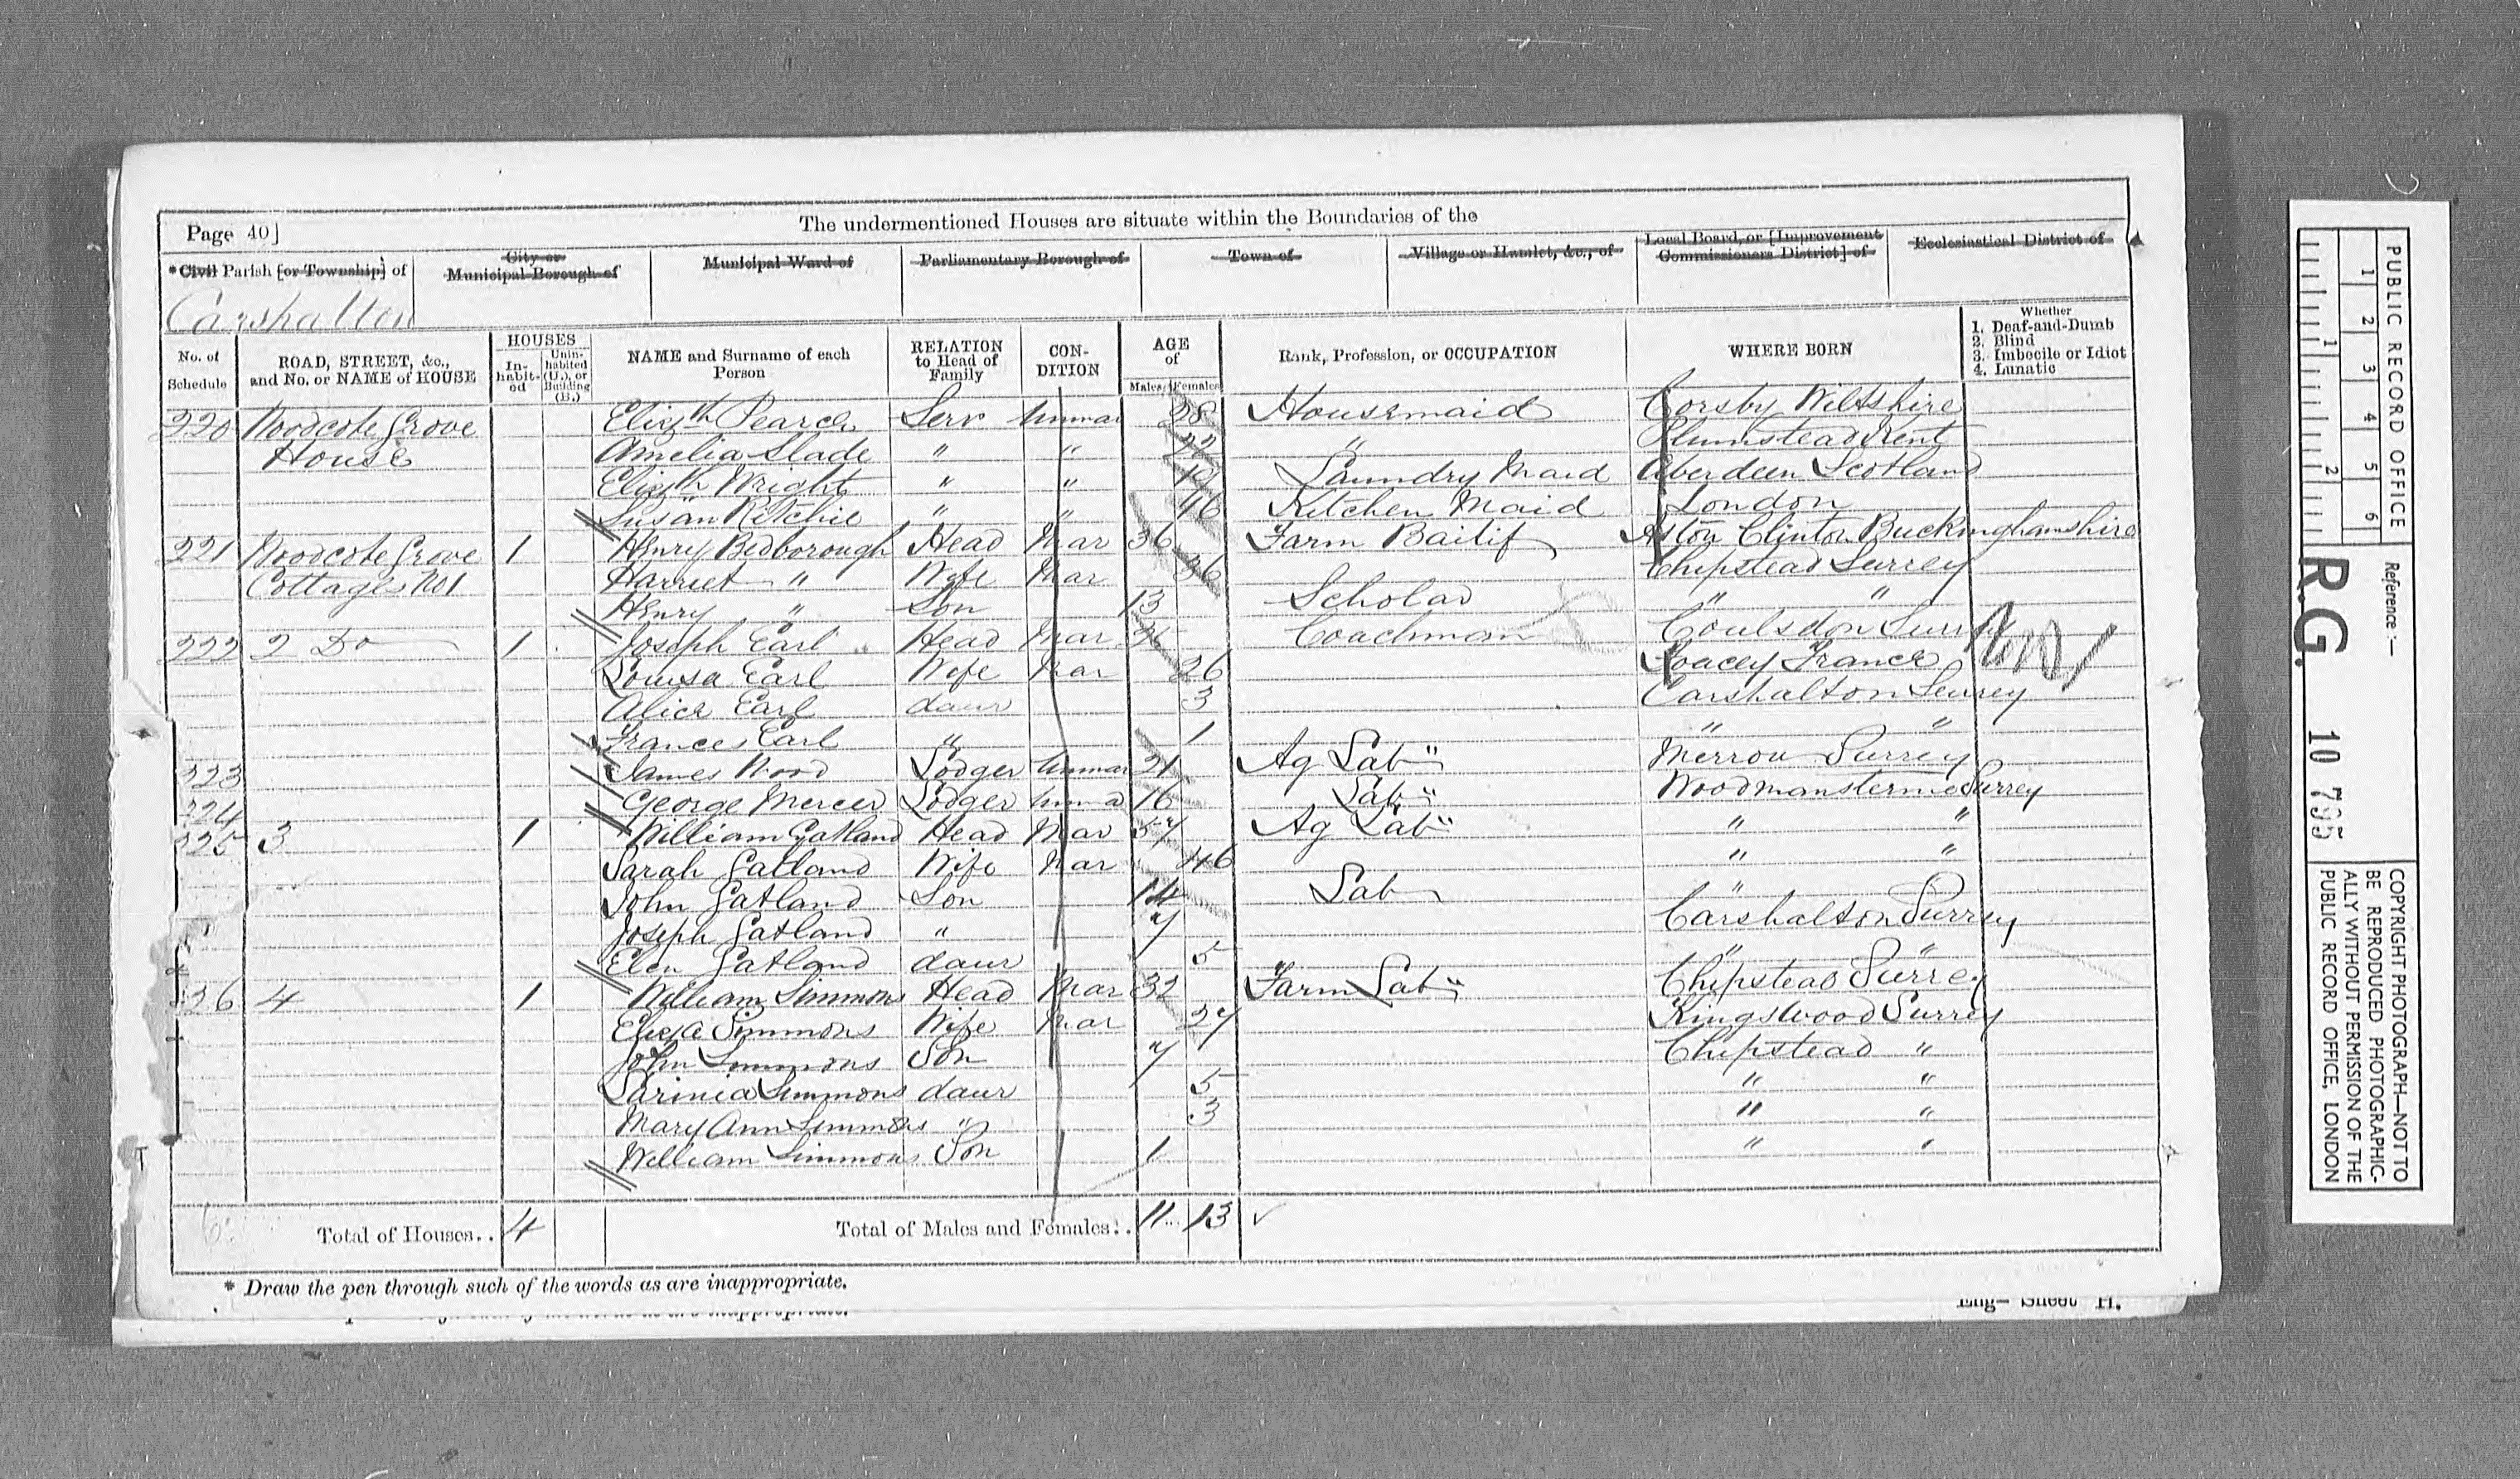 Page 40]
The undermentioned Houses are situate within the Boundaries of the
*Civil Parish [or Township] of
City or Municipal Borough of
Municipal Ward of
Parliamentary Borough of
Town of
Village or Hamlet, &c., of
Local Board, or [Improvement Commissioners District] of
Ecclesiastical District of
Carshalton
No. of Schedule
ROAD, STREET, &c., and No. or NAME of HOUSE
HOUSES
In-habit-ed
Unin-habited (U.), or Building (B.)
NAME and Surname of each Person
RELATION to Head of Family
CON-DITION
AGE of
Males Females
Rank, Profession, or OCCUPATION
WHERE BORN
Whether
1. Deaf-and-Dumb
2. Blind
3. Imbecile or Idiot
4. Lunatic
220 Woodcote Grove Elizth Pearce Serv Unmar 28 Housemaid Corsby Wiltshire
House Amelia Slade " " 22 " Plumstead Kent
Elizth Wright " " 19 Laundry Maid Aberdeen Scotland
Susan Ritchie " " 16 Kitchen Maid London
221 Woodcote Grove 1 Henry Bedborough Head Mar 36 Farm Bailif Aston Clinton Buckinghamshire
Cottages No 1 Harriet " Wife Mar 36 Chipstead Surrey
Henry " Son 13 Scholar " "
222 2 Do 1 Joseph Earl Head Mar 26 Coachman Coulsdon Surrey
Louisa Earl Wife Mar 26 France
Alice Earl daur 3 Carshalton Surrey
Frances Earl " 1 " "
223 James Wood Lodger Unmar 21 Ag Lab Merrow Surrey
224 George Mercer Lodger Unma 16 Lab Woodmansterne Surrey
225 3 1 William Gatland Head Mar 57 Ag Lab " "
Sarah Gatland Wife Mar 46 " "
John Gatland Son 14 Lab "
Joseph Gatland " 7 Carshalton Surrey
Elen Gatland daur 5 " "
226 4 1 William Simmons Head Mar 32 Farm Lab Chipstead Surrey
Eliza Simmons Wife Mar 27 Kingswood Surrey
John Simmons Son 7 Chipstead "
Simmons daur 5 " "
Mary Ann Simmons " 3 " "
William Simmons Son 1 " "
Total of Houses.. 4 Total of Males and Females.. 11 13
* Draw the pen through such of the words as are inappropriate.
Eng— Sheet H.
PUBLIC RECORD OFFICE
1 2 3 4 5 6
1 2
Reference:—
R.G. 10 795
COPYRIGHT PHOTOGRAPH—NOT TO
BE REPRODUCED PHOTOGRAPHIC-
ALLY WITHOUT PERMISSION OF THE
PUBLIC RECORD OFFICE, LONDON